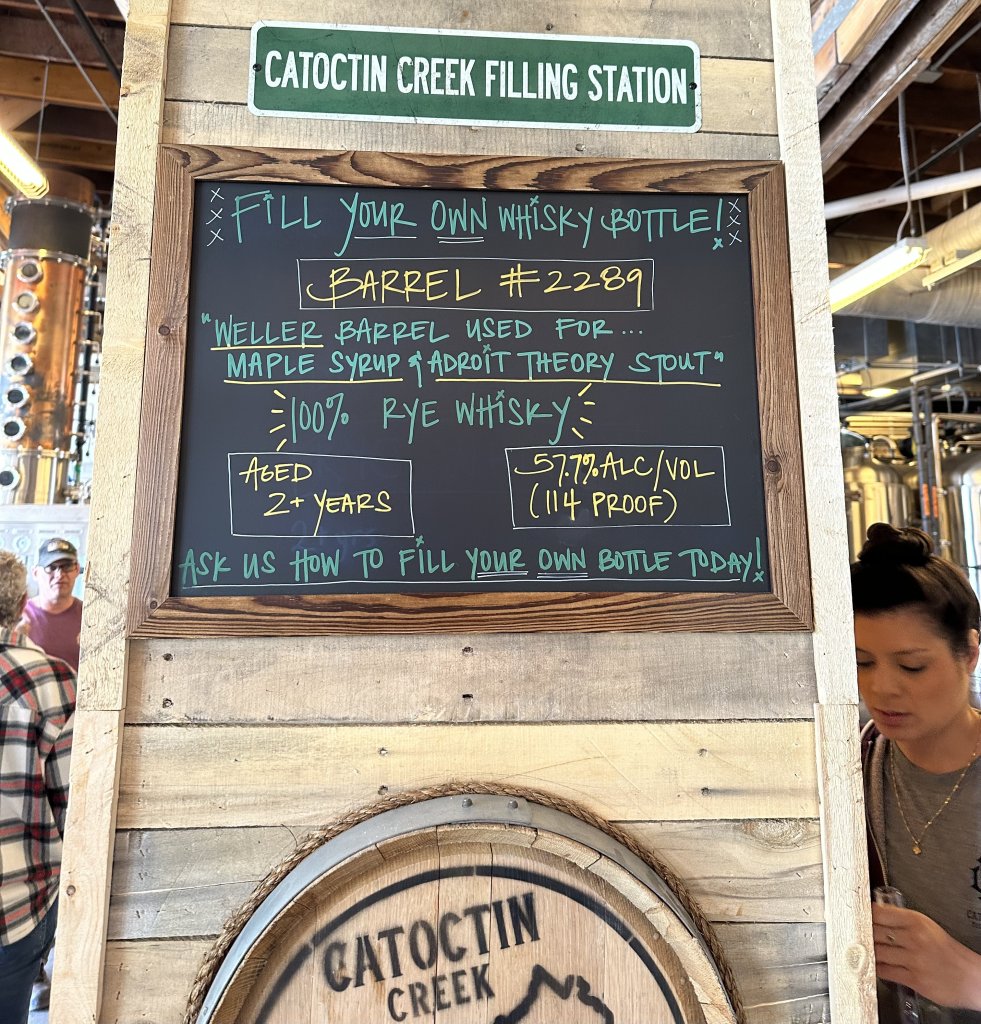 CATOCTIN CREEK FILLING STATION
FILL YOUR OWN WHISKY BOTTLE!
BARREL #2289
"WELLER BARREL USED FOR...
MAPLE SYRUP & ADROIT THEORY STOUT"
100% RYE WHISKY
AGED
2+ YEARS
57.7% ALC/VOL
(114 PROOF)
ASK US HOW TO FILL YOUR OWN BOTTLE TODAY!
CATOCTIN
CREEK